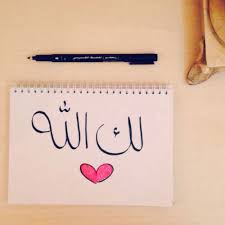 لك الله